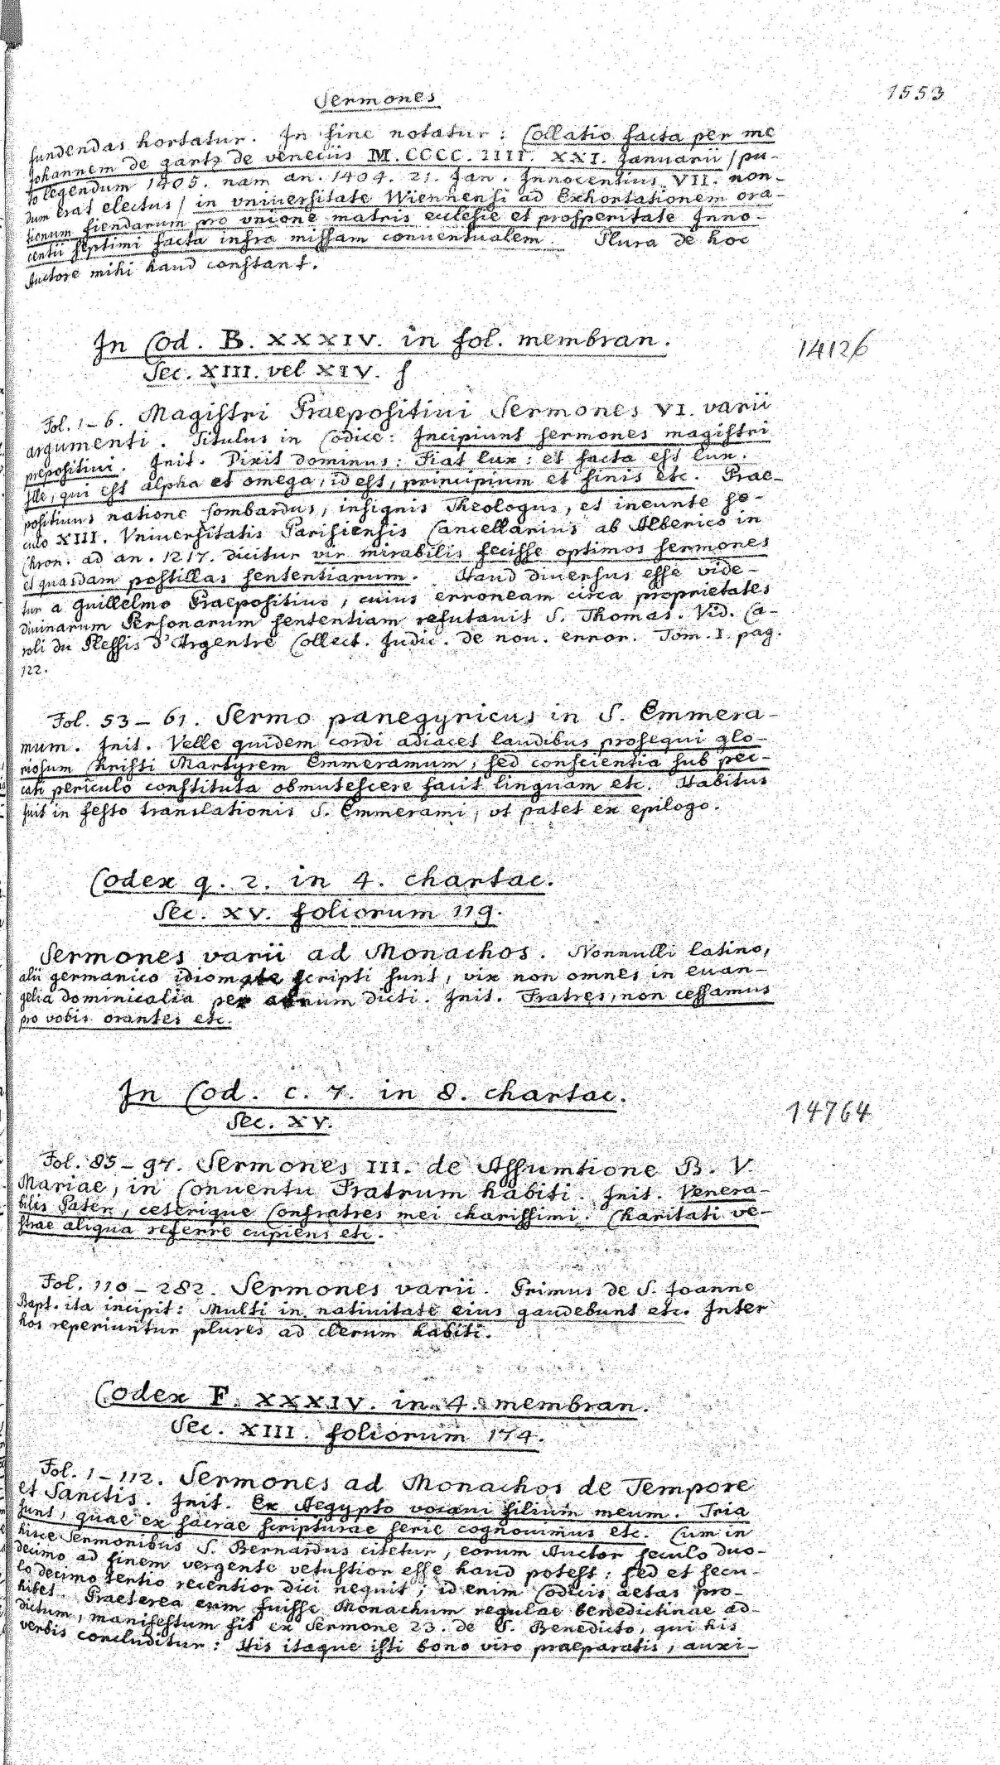 Sermones
1553
fundendas hortatur. In fine notatur: Collatio facta per me
Johannem de gartz de veneciis M.CCCC.IIII. XXI. Januarii / pu-
to legendum 1405. nam an. 1404. 21. Jan. Innocentius VII. non-
dum erat electus / in vniuersitate Wiennensi ad Exhortationem ora-
tionum fiendarum pro vnione matris ecclesie et prosperitate Inno-
centii septimi facta infra missam conuentualem. Plura de hoc
Auctore mihi haud constant.
In Cod. B. XXXIV. in fol. membran.
14126
Sec. XIII. vel XIV.
Fol. 1-6. Magistri Praepositiui Sermones VI. varii
argumenti. Titulus in Codice: Incipiunt sermones magistri
prepositiui. Init. Dixit dominus: Fiat lux: et facta est lux.
Ille, qui est alpha et omega, id est, principium et finis etc. Prae-
positiuus natione Lombardus, insignis Theologus, et ineunte se-
culo XIII. Vniuersitatis Parisiensis Cancellarius ab Alberico in
Chron. ad an. 1217. dicitur vir mirabilis fecisse optimos sermones
et quasdam postillas sententiarum. Haud diuersus esse vide-
tur a Guillelmo Praepositiuo, cuius erroneam circa proprietates
diuinarum Personarum sententiam refutauit S. Thomas. Vid. Ca-
roli du Plessis d'Argentre Collect. Judic. de nou. error. Tom. I. pag.
122.
Fol. 53-61. Sermo panegyricus in S. Emmera-
mum. Init. Velle quidem cordi adiacet laudibus prosequi glo-
riosum Christi Martyrem Emmeramum, sed conscientia sub pec-
cati periculo constituta obmutescere facit linguam etc. Habitus
fuit in festo translationis S. Emmerami, vt patet ex epilogo.
Codex q. 2. in 4. chartac.
Sec. XV. foliorum 119.
Sermones varii ad Monachos. Nonnulli latino,
alii germanico idiomate scripti sunt, vix non omnes in euan-
gelia dominicalia per annum dicti. Init. Fratres, non cessamus
pro vobis orantes etc.
In Cod. c. 7. in 8. chartac.
14764
Sec. XV.
Fol. 85-97. Sermones III. de Assumtione B. V.
Mariae, in Conuentu Fratrum habiti. Init. Venera-
bilis Pater, ceterique Confratres mei charissimi. Charitati ve-
strae aliqua referre cupiens etc.
Fol. 110-282. Sermones varii. Primus de S. Joanne
Bapt. ita incipit: Multi in natiuitate eius gaudebunt etc. Inter
hos reperiuntur plures ad clerum habiti.
Codex F. XXXIV. in 4. membran.
Sec. XIII. foliorum 174.
Fol. 1-112. Sermones ad Monachos de Tempore
et Sanctis. Init. Ex Aegypto vocaui filium meum. Tria
sunt, quae ex sacrae scripturae serie cognouimus etc. Cum in
hisce Sermonibus S. Bernardus citetur, eorum Auctor seculo duo-
decimo ad finem vergente vetustior esse haud potest: sed et secu-
lo decimo tertio recentior dici nequit; id enim Codicis aetas pro-
hibet. Praeterea eum fuisse Monachum regulae benedictinae ad-
dictum, manifestum fit ex Sermone 23. de S. Benedicto, qui his
verbis concluditur: His itaque isti bono viro praeparatis, auxi-